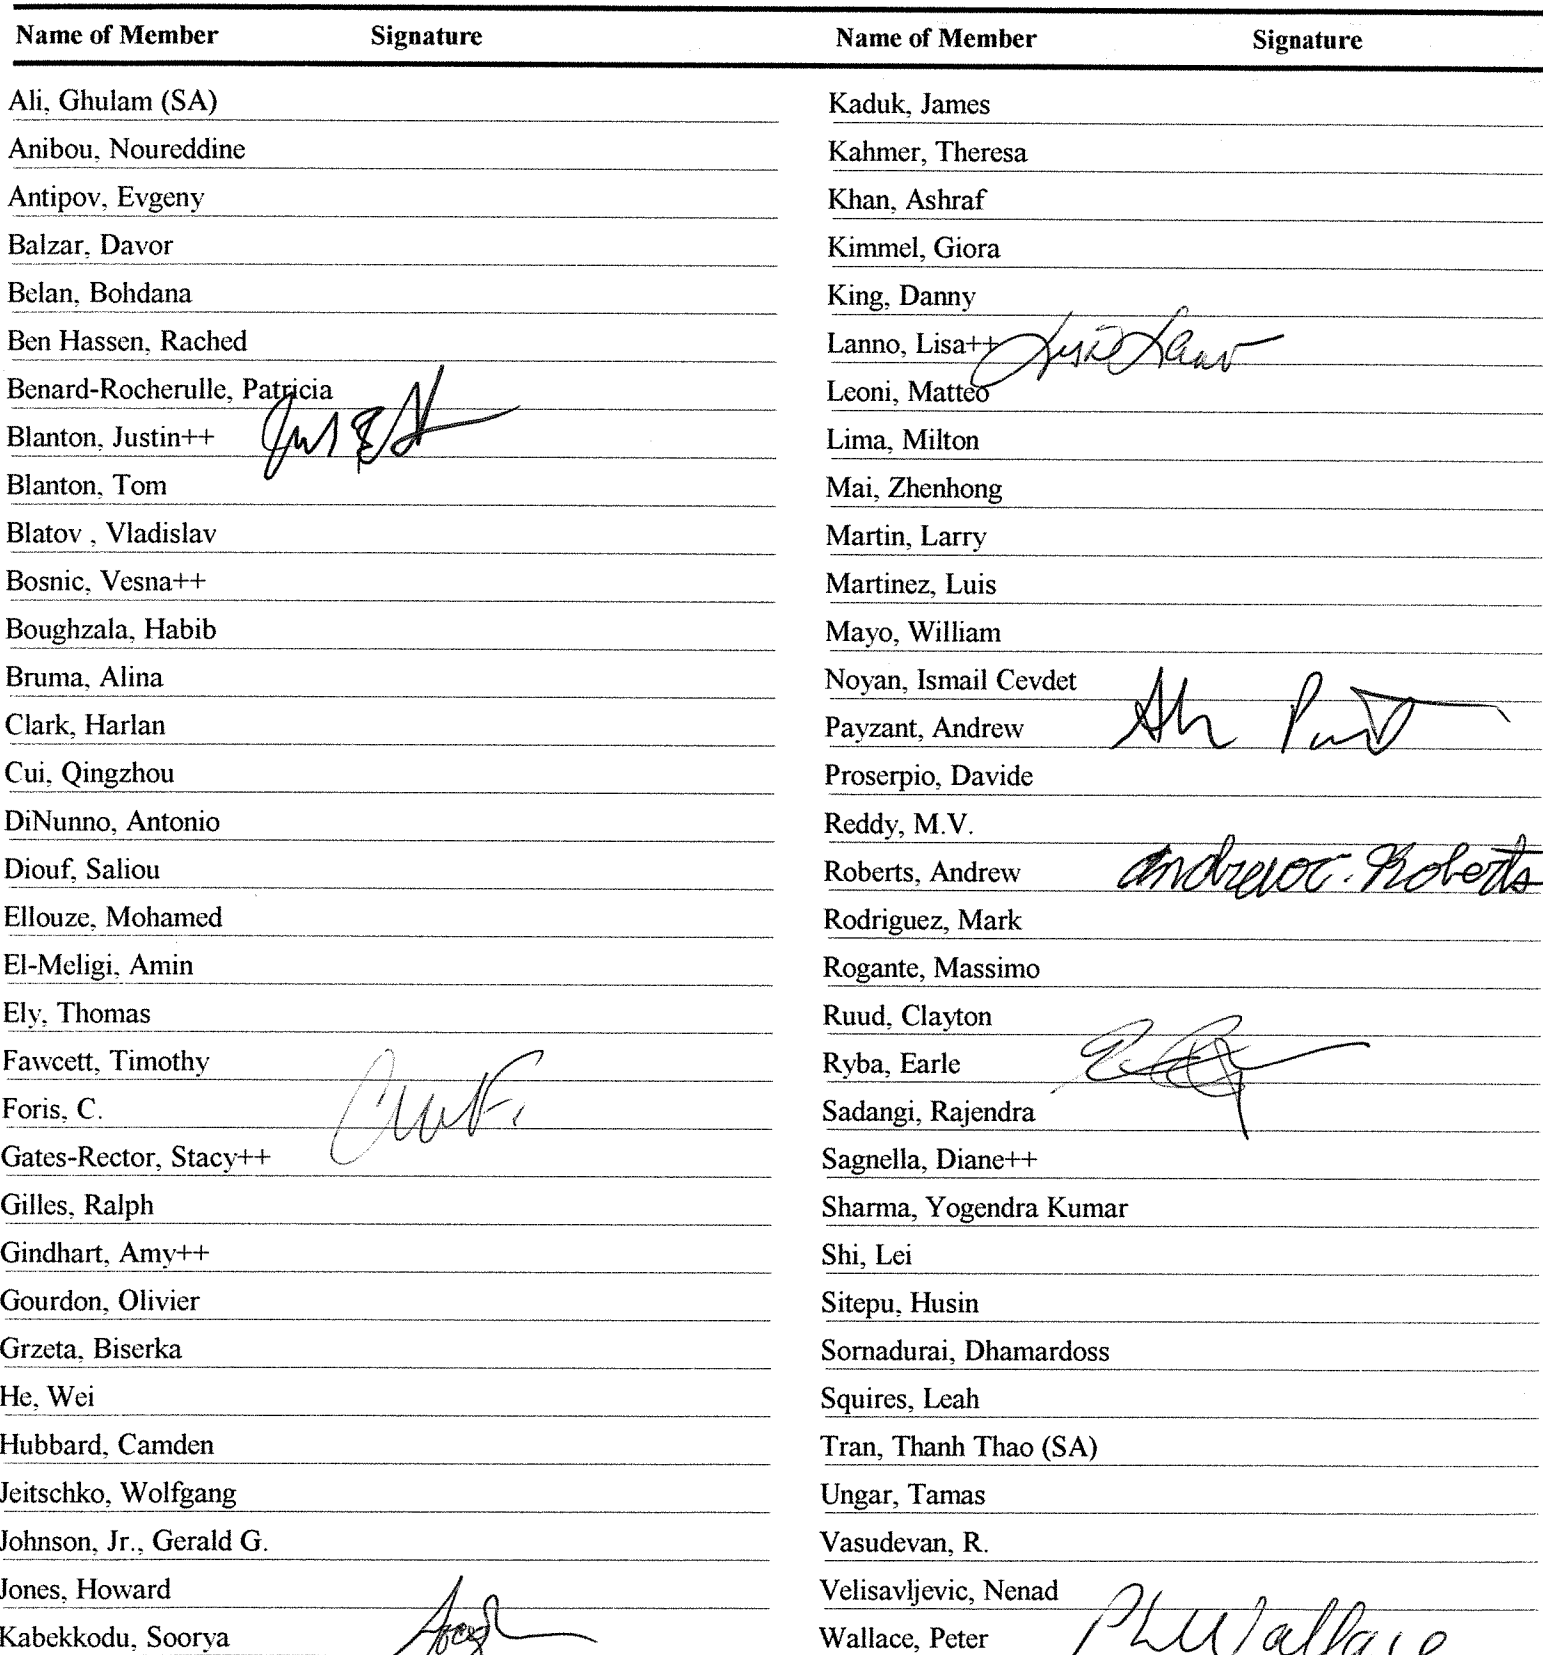 Name of Member Signature
Ali, Ghulam (SA)
Anibou, Noureddine
Antipov, Evgeny
Balzar, Davor
Belan, Bohdana
Ben Hassen, Rached
Benard-Rocherulle, Patricia
Blanton, Justin++
Blanton, Tom
Blatov , Vladislav
Bosnic, Vesna++
Boughzala, Habib
Bruma, Alina
Clark, Harlan
Cui, Qingzhou
DiNunno, Antonio
Diouf, Saliou
Ellouze, Mohamed
El-Meligi, Amin
Ely, Thomas
Fawcett, Timothy
Foris, C.
Gates-Rector, Stacy++
Gilles, Ralph
Gindhart, Amy++
Gourdon, Olivier
Grzeta, Biserka
He, Wei
Hubbard, Camden
Jeitschko, Wolfgang
Johnson, Jr., Gerald G.
Jones, Howard
Kabekkodu, Soorya
Name of Member Signature
Kaduk, James
Kahmer, Theresa
Khan, Ashraf
Kimmel, Giora
King, Danny
Lanno, Lisa++
Leoni, Matteo
Lima, Milton
Mai, Zhenhong
Martin, Larry
Martinez, Luis
Mayo, William
Noyan, Ismail Cevdet
Payzant, Andrew
Proserpio, Davide
Reddy, M.V.
Roberts, Andrew Andrew C. Roberts
Rodriguez, Mark
Rogante, Massimo
Ruud, Clayton
Ryba, Earle
Sadangi, Rajendra
Sagnella, Diane++
Sharma, Yogendra Kumar
Shi, Lei
Sitepu, Husin
Sornadurai, Dhamardoss
Squires, Leah
Tran, Thanh Thao (SA)
Ungar, Tamas
Vasudevan, R.
Velisavljevic, Nenad
Wallace, Peter Wallace